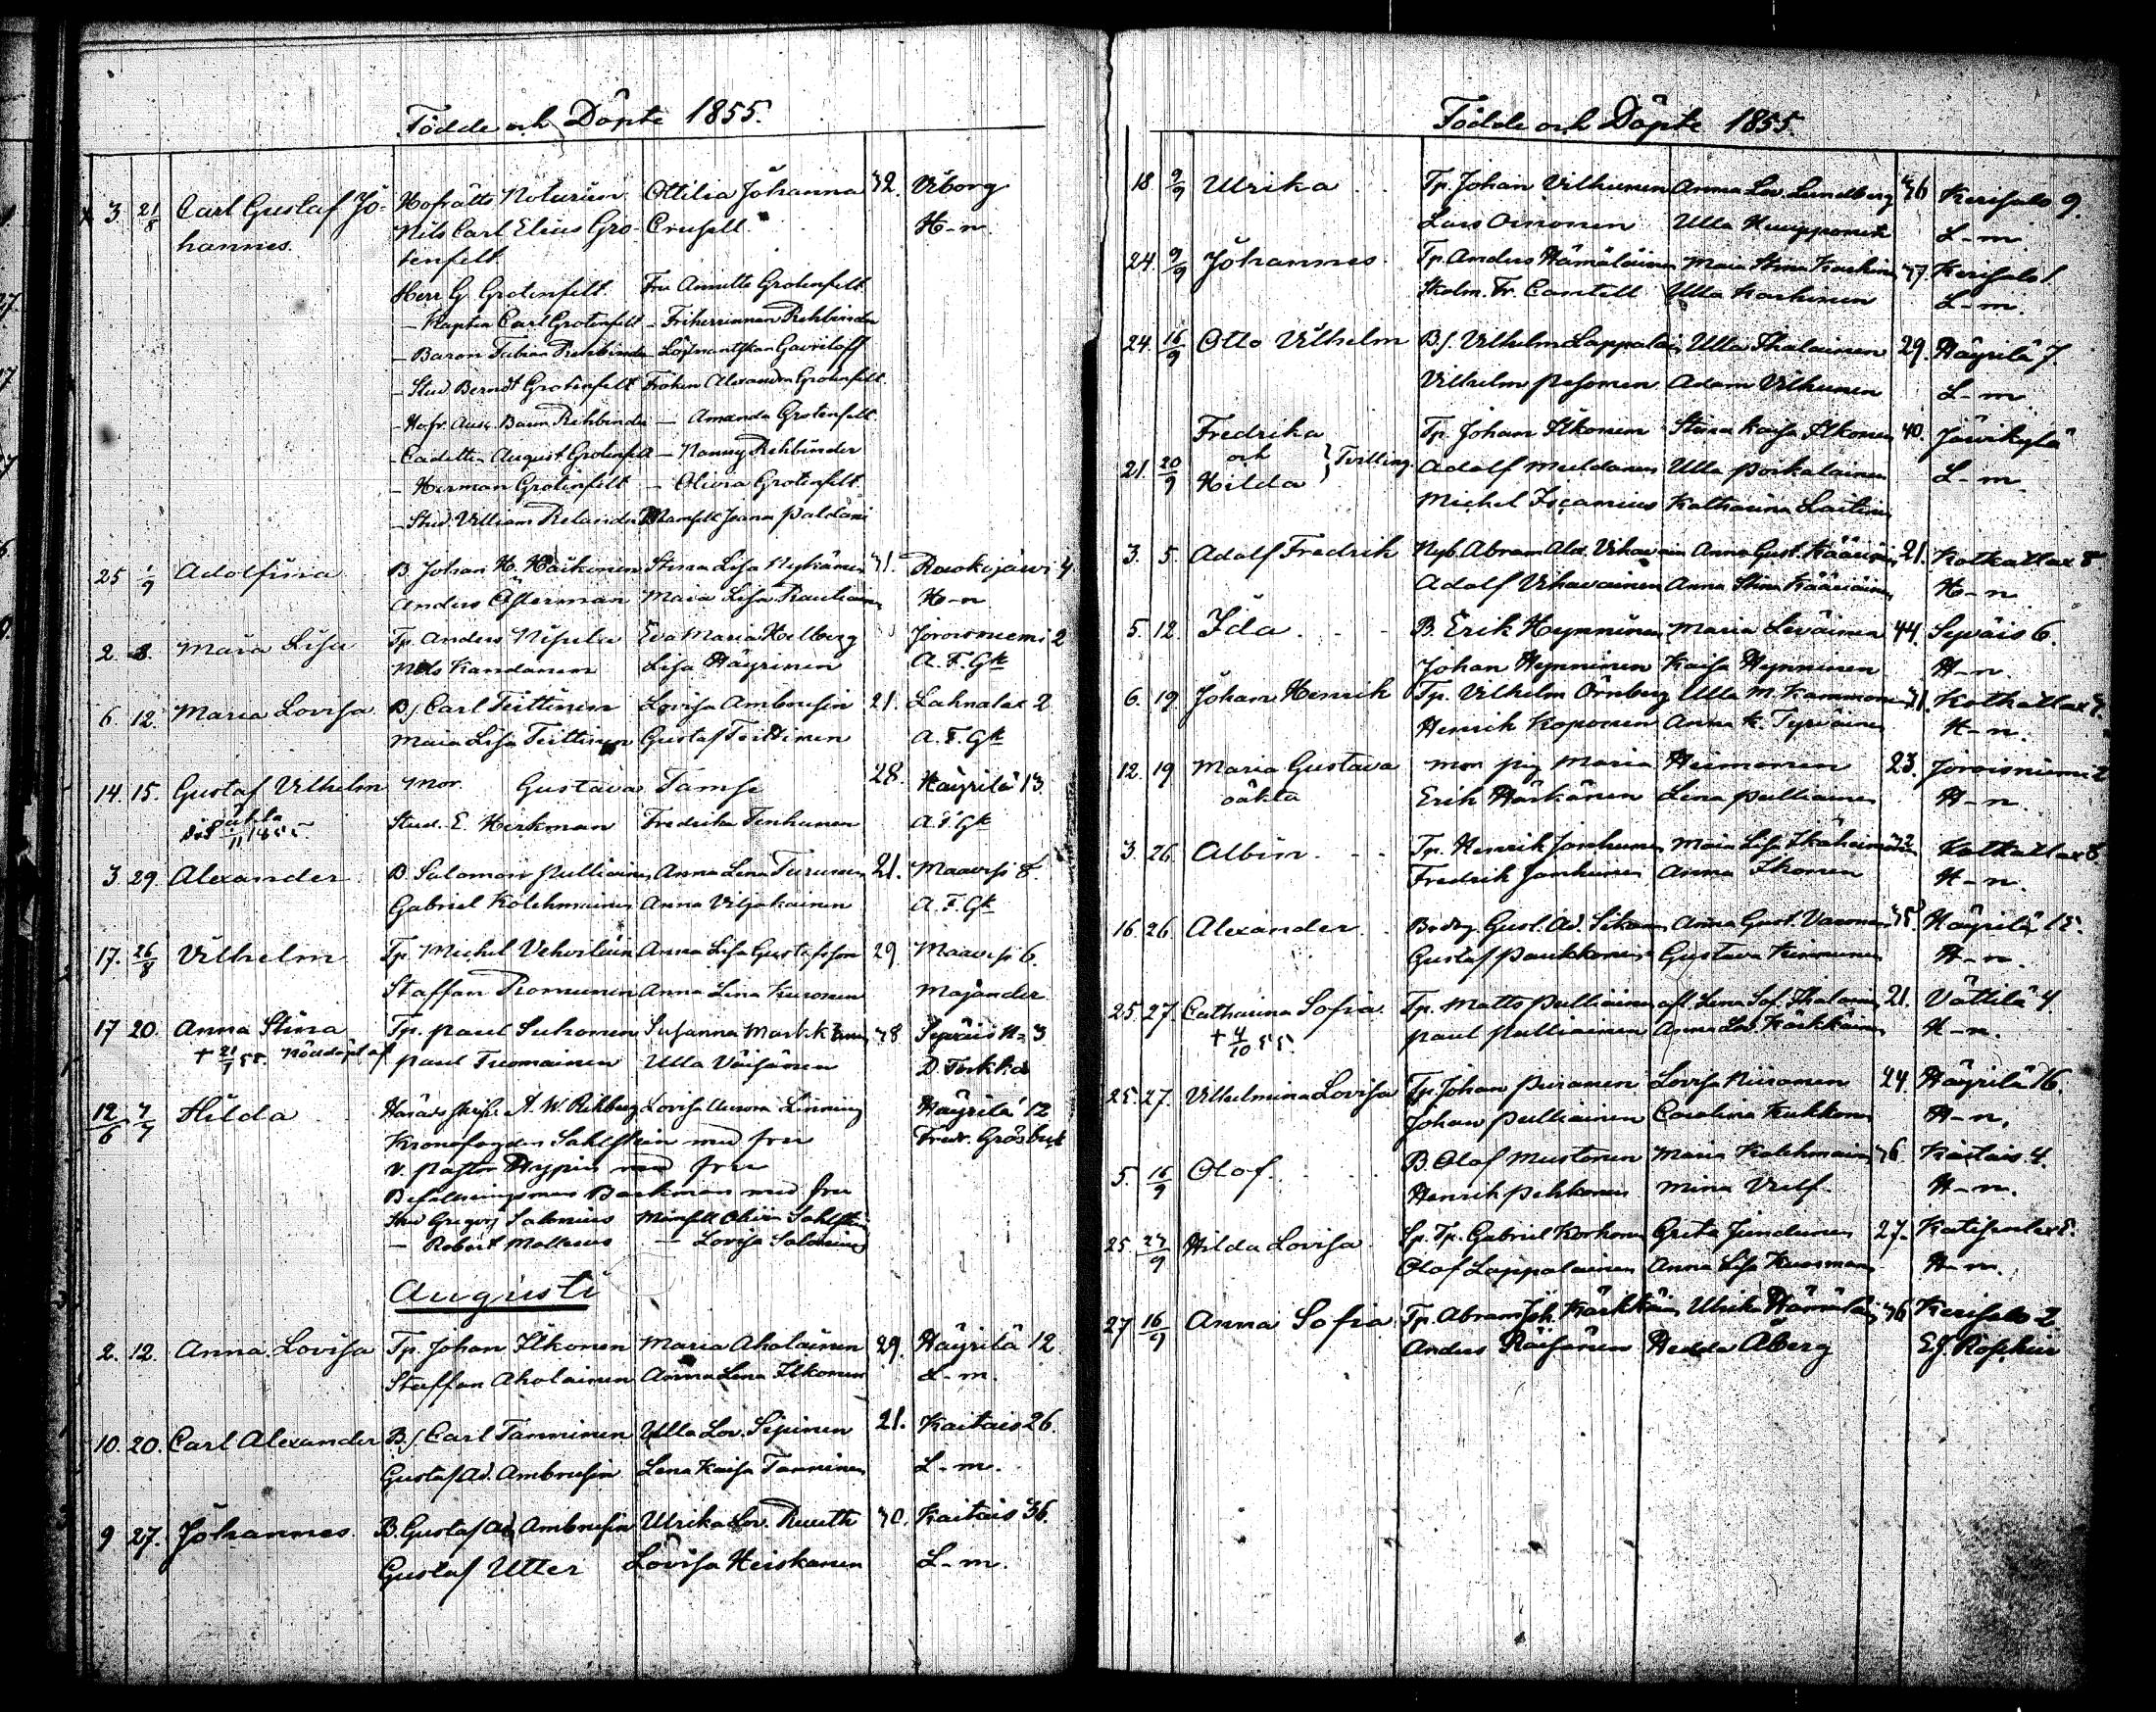 Födde och Döpte 1855.
3. 21/8 Carl Gustaf Jo- Hofrätts Notarien Ottilia Johanna 32. Viborg
hannes. Nils Carl Elius Gro- Crusell H-n
tenfelt
Herr G. Grotenfelt. Fru Annette Grotenfelt
- Kapten Carl Grotenfelt - Friherrinnan Rehbinder
- Baron Rehbinder - Gavriloff
- Stud. Berndt Grotenfelt Fröken Alexandra Grotenfelt.
- Hofr. Ausc. Baron Rehbinder - Amanda Grotenfelt
- Cadetten August Grotenfelt - Nanny Rehbinder
- Herman Grotenfelt - Olivia Grotenfelt
- Stud. William Relander Mamsell Paldani
25 1/9 Adolfina B. Johan H. Häikinen Stina Lisa 31. Ruokojärvi 4
Anders Österman Maia Lisa H-n
2. 8. Maria Lisa Tp. Anders Nisula Eva Maria Hallberg Joroisniemi 2
Nils Kandanen Lisa Häyrinen A. F. Gk
6. 12. Maria Lovisa Bs. Carl Teittinen Lovisa Ambrusin 21. Lahnalax 2
Maia Lisa Teittinen Gustaf Teittinen A. F. Gk
14. 15. Gustaf Vilhelm Mor. Gustava Tamse 28. Häyrilä 13.
oäkta Stud. E. Hirkman Fredrika Tenhunen A. F. Gk
död 1855
3. 29. Alexander B. Salomon Pulliainen Anna Lena Turunen 21. Maavesi 8
Gabriel Kolehmainen Anna Viljakainen A. F. Gk
17. 26/8 Vilhelm Tp. Michel Anna Lisa Gustafsson 29. Maavesi 6.
Staffan Romunen Anna Lina Kuronen Majander
17 20. Anna Stina Tp. Paul Suhonen Susanna 38 Syväis N= 3
+ 21/7 55. Nöddöpt af Paul Tuomainen Ulla Väisänen D. Torkkel
12/6 7/7 Hilda Härads A. W. Rehberg Lovisa Aurora Linning Häyrilä 12
Kronofogden Sahlstein med fru Fredr. Gråsbeck
v. Pastor Hypin med fru
Befallningsman Backman med fru
Stud Gregory Salonius Mamsell Olivia Sahlstein
- Robert Molterus - Lovisa Salonius
Augusti
2. 12. Anna Lovisa Tp. Johan Ilkonen Maria Aholainen 29. Häyrilä 12
Staffan Aholainen Anna Lena Ilkonen L-m.
10. 20. Carl Alexander Bs. Carl Tanninen Ulla Lov. Sipinen 21. Kaitais 26.
Gustaf Ad. Ambrusin Lena Kaisa Tanninen L-m.
9 27. Johannes. B. Gustaf Ad. Ambrusin Ulrika Lov. Ruuth 30. Kaitais 36.
Gustaf Utter Lovisa Heiskanen L-m.
Födde och Döpte 1855.
18 9/9 Ulrika Tp. Johan Vilhunen Anna Lov. Lundberg 36 Kerisalo 9.
Lars Oinonen Ulla L-m.
24. 9/9 Johannes. Tp. Anders Hämäläinen Maia Stina 37. Kerisalo 1.
Skolm. Fr. Castell Ulla L-m.
24. 16/9 Otto Vilhelm Bs. Vilhelm Lappalain Ulla Ihalainen 29. Häyrilä 7.
Vilhelm Pesonen Adam Vilhunen L-m.
Fredrika Tp. Johan Ilkonen Stina Kaisa Ilkonen 40. Järvikylä
21. 20/9 och Hilda } Tvilling. Adolf Muldanen Ulla Poikalainen L-m.
Michel Katharina Laitinen
3. 5. Adolf Fredrik Nyb. Abram Alex. Vihavain Anna Gust. Kääriäin 21. Kotkatlax 8
Adolf Vihavainen Anna Stina Kääriäinen H-n.
5. 12. Ida. B. Erik Hynninen Maria Leväinen 44. Syväis 6.
Johan Hynninen Kaisa Hynninen H-n.
6. 19. Johan Henrik Tp. Vilhelm Örnberg Ulla M. Kammonen 31. Kotkatlax
Henrik Koponen Anna K. Tyrväinen H-n.
12. 19 Maria Gustava Mor pig Maria Heimonen 23. Joroisniemi 2
oäkta Erik Härkänen Lina Pulliainen H-n.
3. 26 Albin. Tp. Henrik Janhunen Maia Lisa Ikäheimonen 32 Kotkatlax 8
Fredrik Janhunen Anna Ikonen H-n.
16. 26. Alexander. Gust. Ad. Anna Gust. Häyrilä 15.
Gustaf Paukkonen Gustava Kinnunen H-n.
25. 27. Catharina Sofia. Tp. Matts Pulliainen Lena Sof. 21. Vättilä 4
+ 4/10 55. Paul Pulliainen Anna Lov. Kärkkäinen H-n.
25. 27. Vilhelmina Lovisa Tp. Johan Piiranen Lovisa Niiranen 24. Häyrilä 16.
Johan Pulliainen Carolina Kukkonen H-n.
5. 16/9 Olof. B. Olof Mustonen Maria Kolehmain 36. Kaitais 4.
Henrik Pekkonen Mina Vulf. H-n.
25. 27/9 Hilda Lovisa Sp. Tp. Gabriel Korhonen Greta Jundunen 27. Katisalax
Olof Lappalainen Anna Lisa Kuosmanen H-n.
27 16/9 Anna Sofia Tp. Abram Joh. Kärkkäin Ulrika Hämäläin 36 Kerisalo 2.
Anders Räisänen Hedda Åberg Ef.